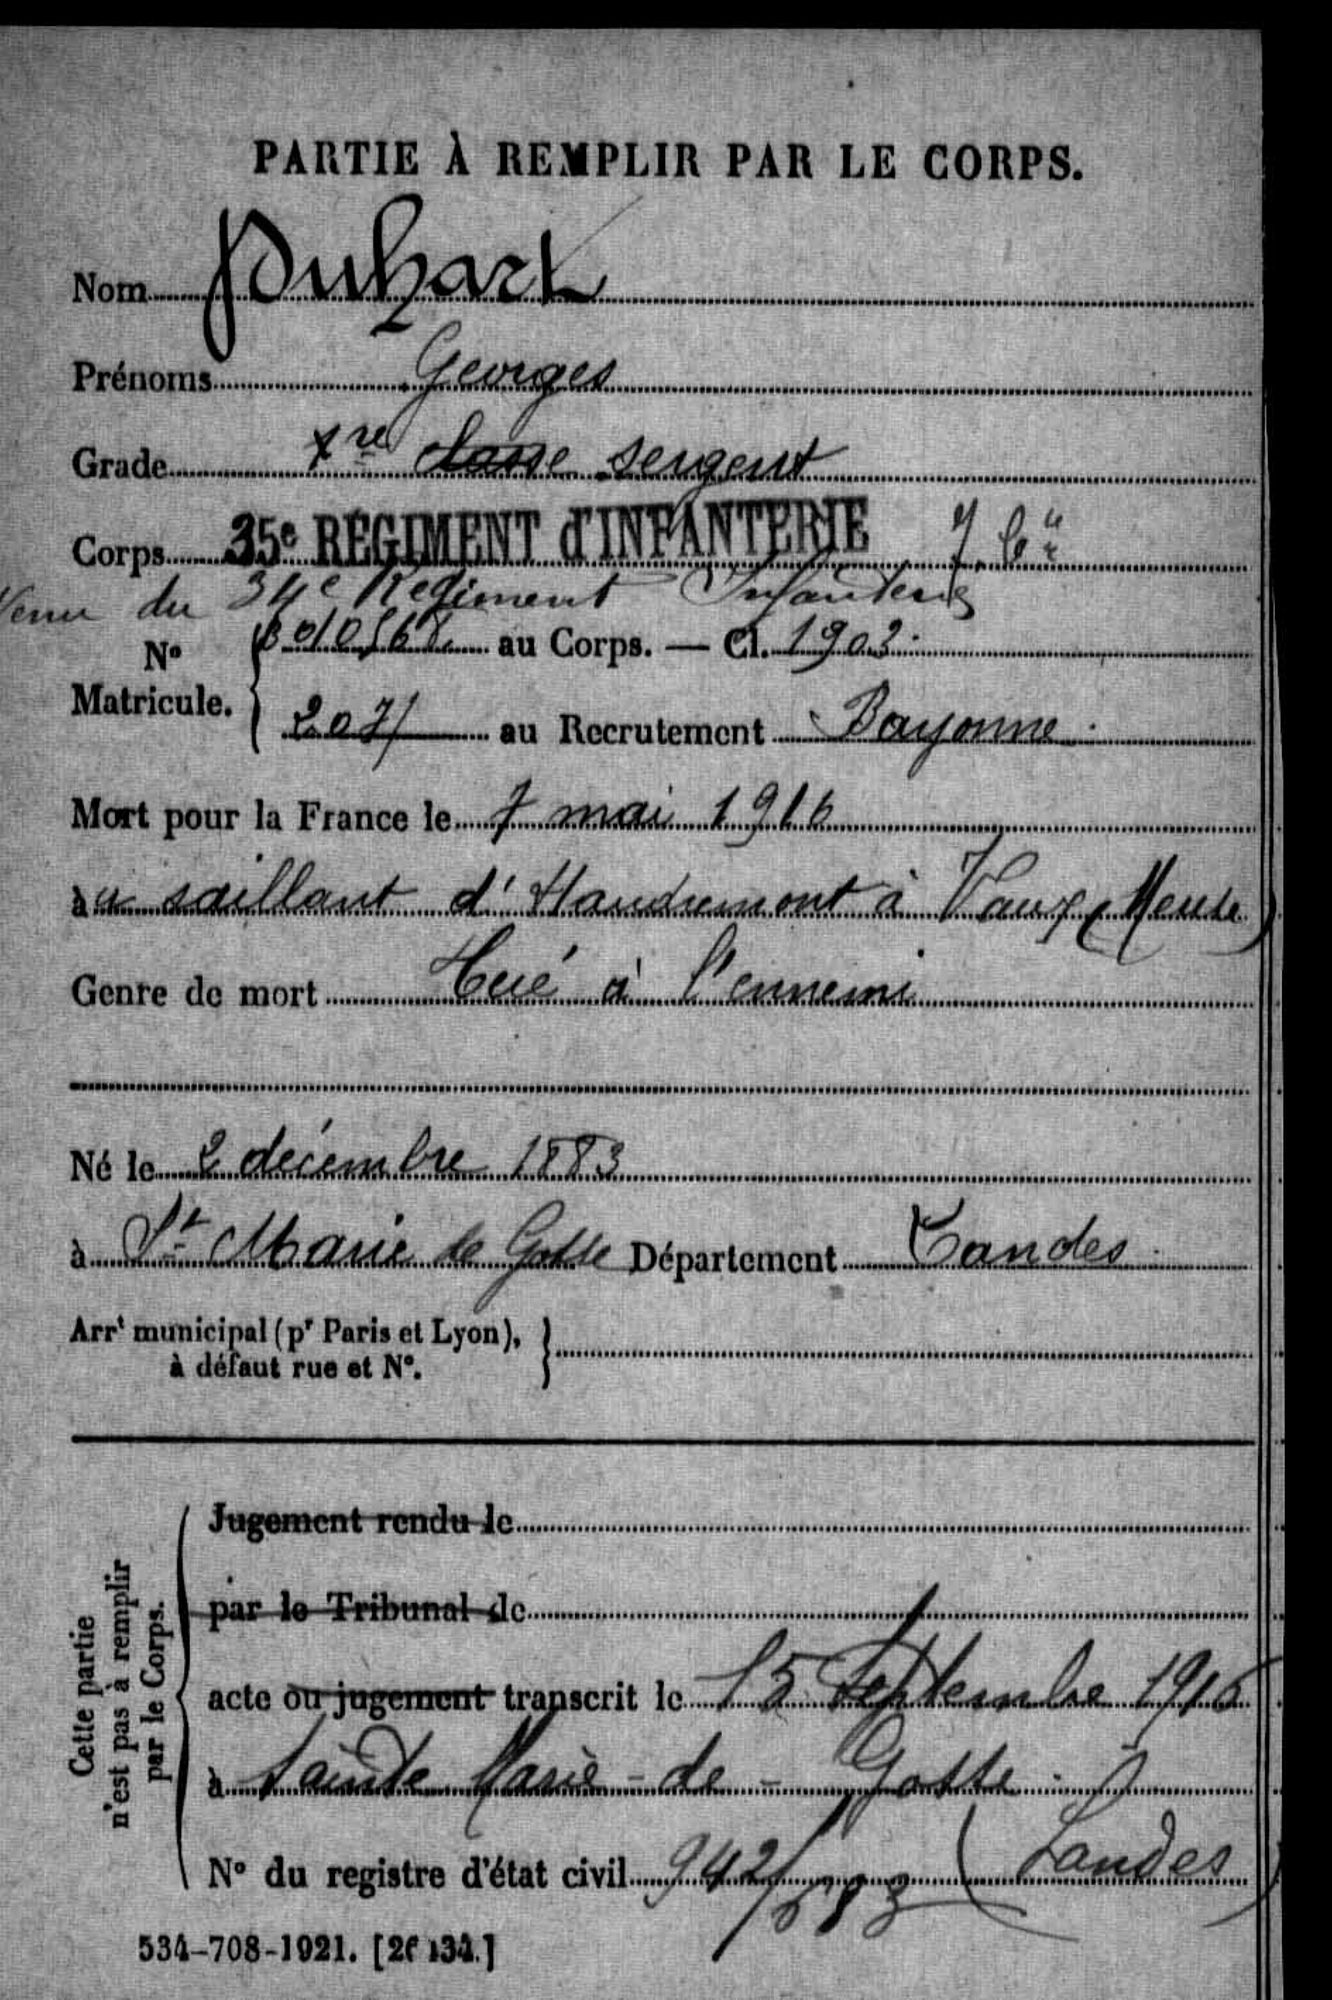 PARTIE À REMPLIR PAR LE CORPS.
Nom Duhart
Prénoms Georges
Grade 1re classe sergent
Corps 35e RÉGIMENT d'INFANTERIE 7. Cie
Venu du 34e Régiment Infanterie
No Matricule. 010568 au Corps. — Cl. 1903.
2071 au Recrutement Bayonne.
Mort pour la France le 7 mai 1916
au saillant d'Haudremont à Vaux (Meuse)
Genre de mort Tué à l'ennemi
Né le 2 décembre 1883
à Ste Marie de Gosse Département Landes.
Arrt municipal (pr Paris et Lyon),
à défaut rue et No.
Cette partie
n'est pas à remplir
par le Corps.
Jugement rendu le
par le Tribunal de
acte ou jugement transcrit le 15 Septembre 1916
à Sainte Marie-de-Gosse.
No du registre d'état civil 942/583 (Landes)
534-708-1921. [26134.]